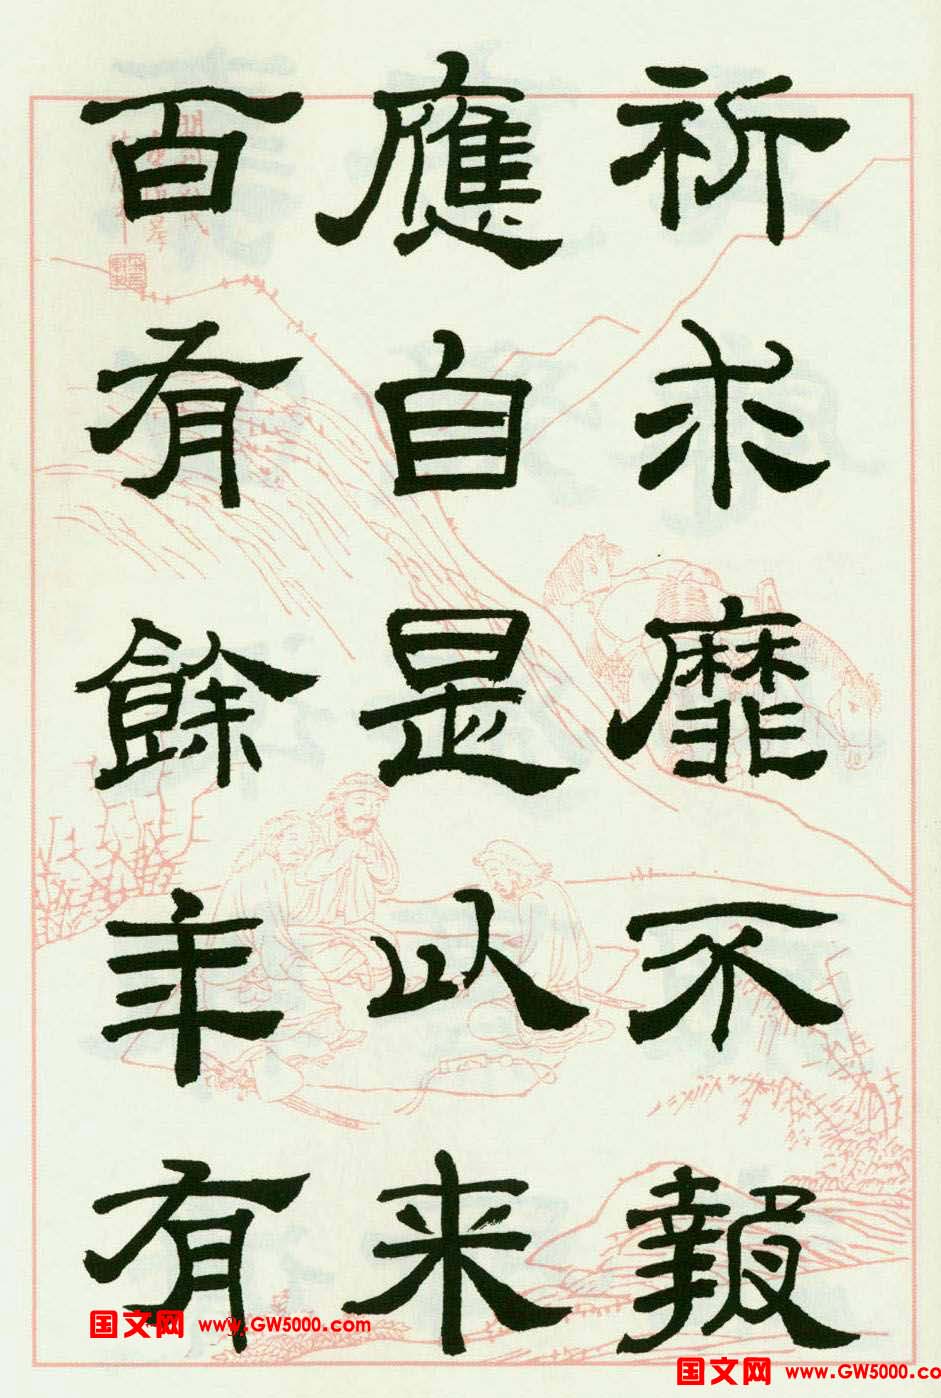 祈求靡不報
應自是以来
百有餘年有
国文网 www.GW5000.com
国文网 www.GW5000.co